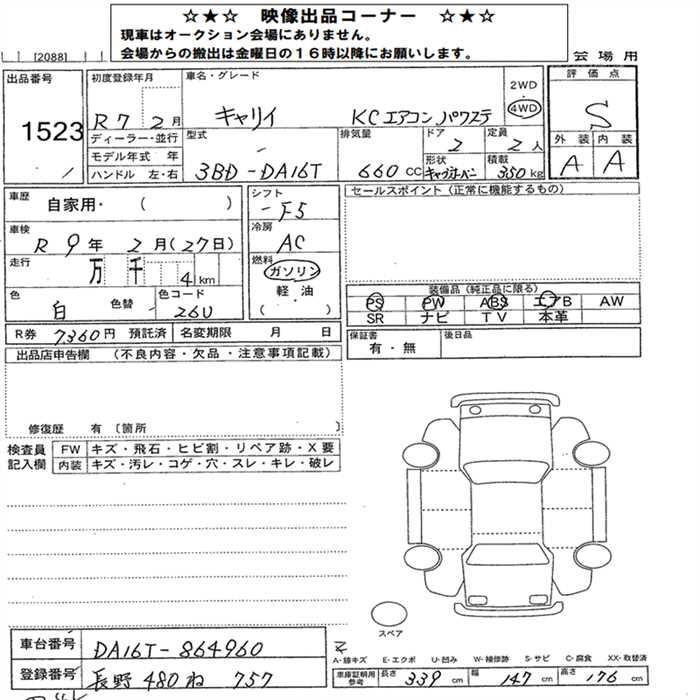 ☆★☆ 映像出品コーナー ☆★☆
現車はオークション会場にありません。
会場からの搬出は金曜日の16時以降にお願いします。
[2088]
会場用
出品番号
1523
初度登録年月
R7 2月
ディーラー・並行
モデル年式 年
ハンドル 左・右
車名・グレード
キャリイ KCエアコン、パワステ
2WD
4WD
型式
3BD-DA16T
排気量
660cc
ドア
2
定員
2人
形状
積載
350kg
評価点
S
外装 内装
A A
車歴
自家用・( )
車検
R 9年 2月(27日)
走行
万 千 4km
色
白
色替
色コード
26U
シフト
F5
冷房
AC
燃料
ガソリン
軽・油
( )
セールスポイント(正常に機能するもの)
装備品(純正品に限る)
PS PW ABS エアB AW
SR ナビ TV 本革
R券 7360円 預託済 名変期限 月 日
保証書
有・無
後日品
出品店申告欄 (不良内容・欠品・注意事項記載)
修復歴 有〔箇所 〕
検査員記入欄
FW キズ・飛石・ヒビ割・リペア跡・X要
内装 キズ・汚レ・コゲ・穴・スレ・キレ・破レ
スペア
車台番号 DA16T-864960
登録番号 長野 480 ね 757
A-線キズ E-エクボ U-凹み W-補修跡 S-サビ C-腐食 XX-取替済
車庫証明用参考 長さ 339cm 幅 147cm 高さ 176cm